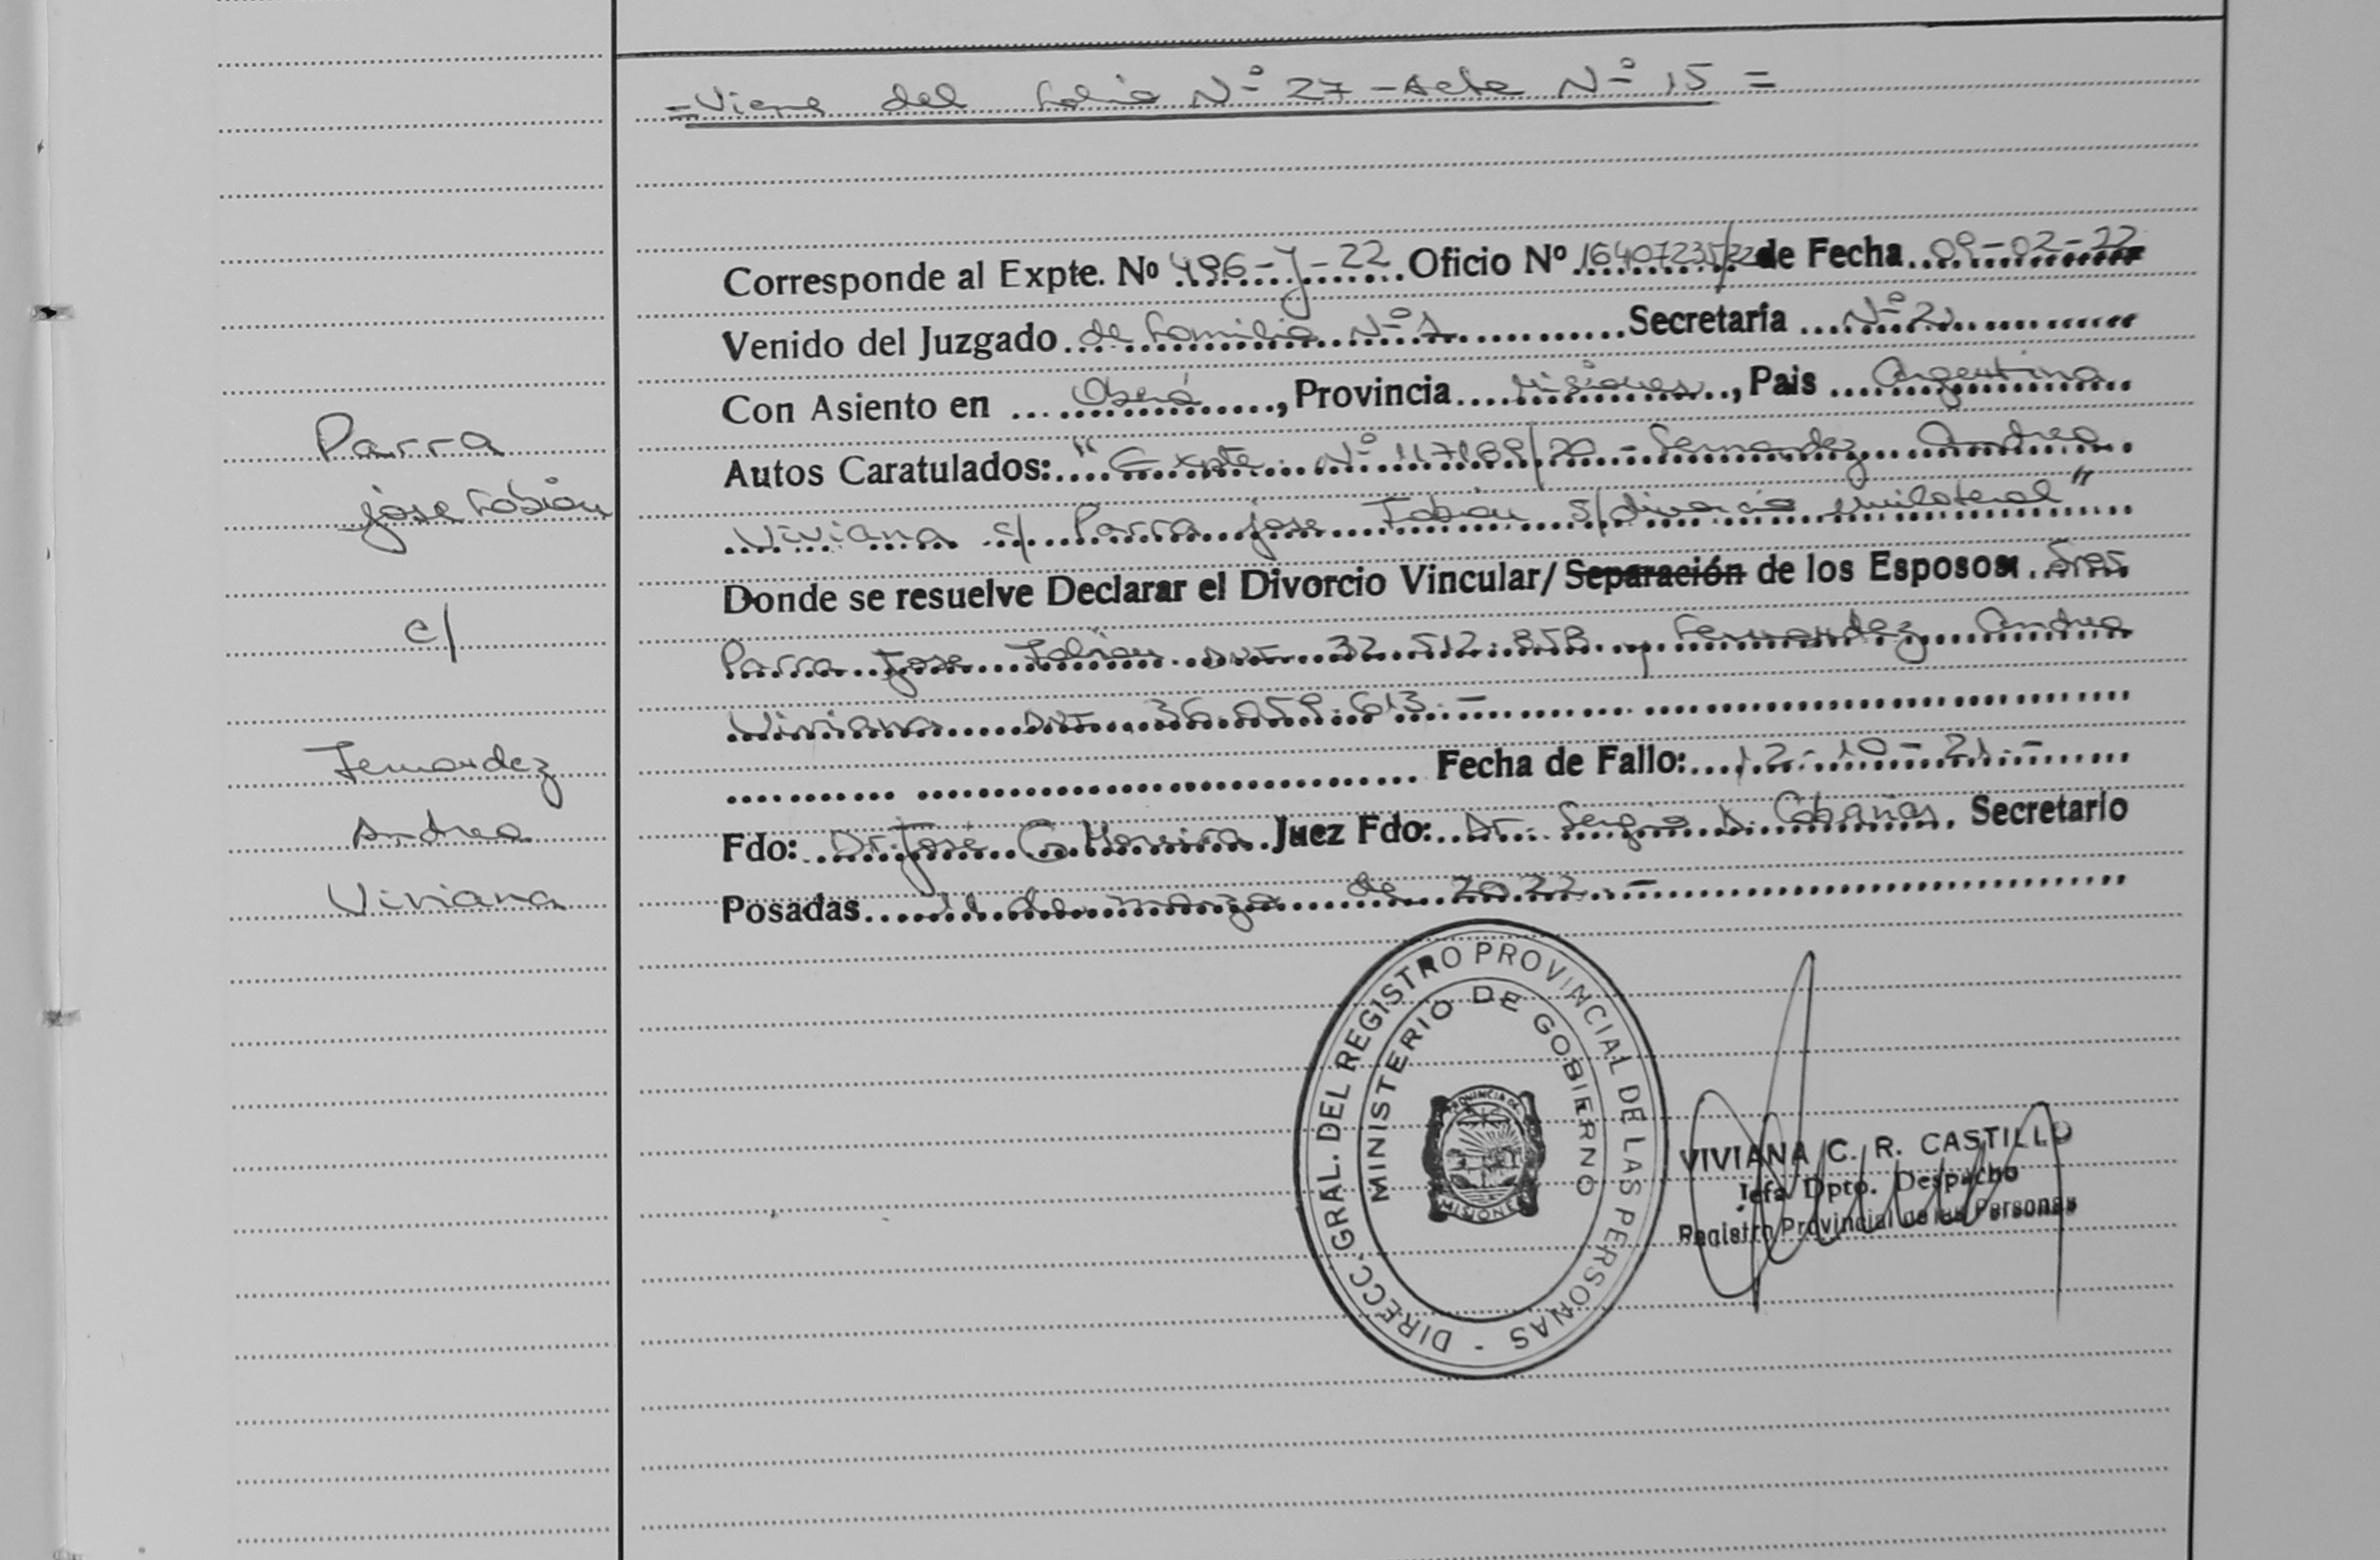 =Viene del Folio Nº 27 - Acta Nº 15=
Corresponde al Expte. Nº 496-J-22 Oficio Nº 16407235/22 de Fecha 09-02-22
Venido del Juzgado de Familia Nº 1 Secretaría Nº 2
Con Asiento en Oberá, Provincia Misiones, Pais Argentina
Autos Caratulados: "Expte. Nº 117189/20 - Fernandez Andrea
Viviana c/ Parra Jose Fabián s/divorcio unilateral"
Donde se resuelve Declarar el Divorcio Vincular/Separación de los Esposos: Sres
Parra Jose Fabián DNI 32.512.858 y Fernandez Andrea
Viviana DNI 36.059.613.-
Fecha de Fallo: 12-10-21.-
Fdo: Dr. José G Moreira Juez Fdo: Dr. Sergio D. Cabañas. Secretario
Posadas 11 de marzo de 2022.-
Parra
Jose Fabián
c/
Fernandez
Andrea
Viviana
DIRECC. GRAL. DEL REGISTRO PROVINCIAL DE LAS PERSONAS -
MINISTERIO DE GOBIERNO
PROVINCIA DE
MISIONES
VIVIANA C. R. CASTILLO
Jefa Dpto. Despacho
Registro Provincial de las Personas